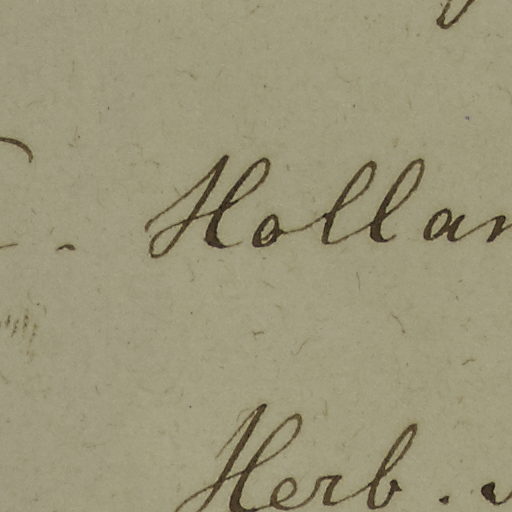 . Hollan
Herb.